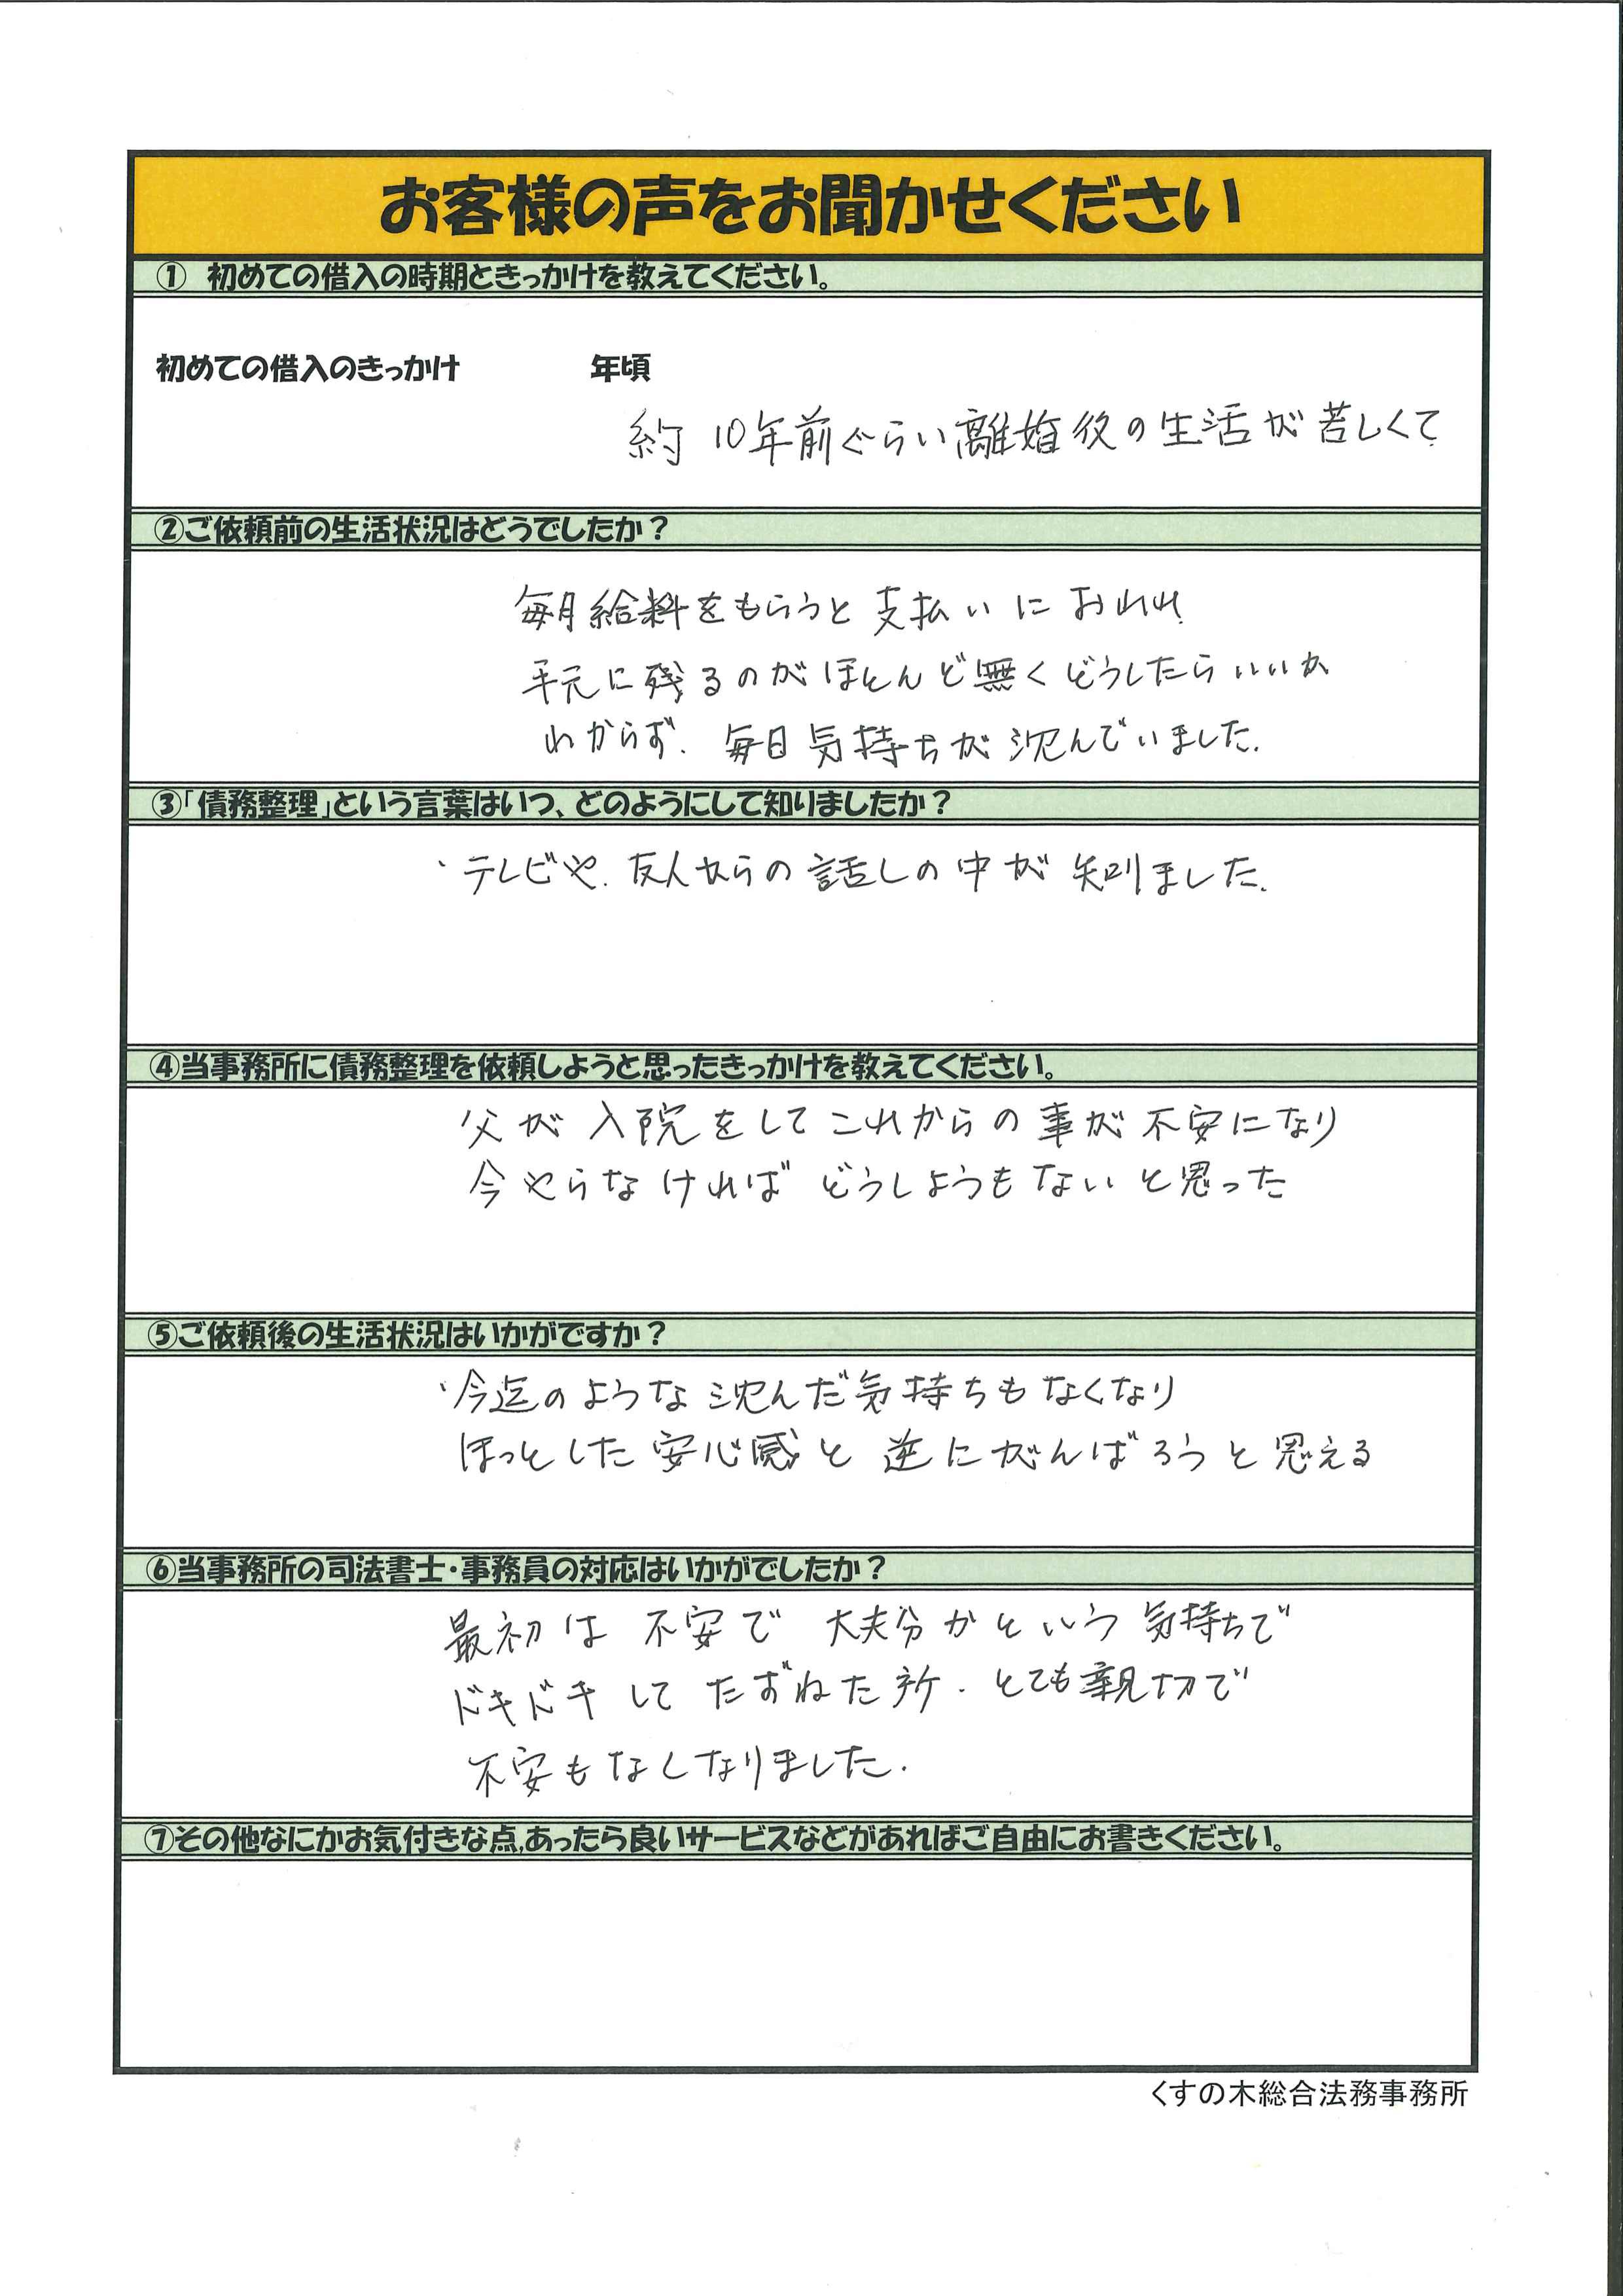 お客様の声をお聞かせください
① 初めての借入の時期ときっかけを教えてください。
初めての借入のきっかけ 年頃
約10年前ぐらい離婚後の生活が苦しくて
②ご依頼前の生活状況はどうでしたか？
毎月給料をもらうと支払いにおわれ
手元に残るのがほとんど無くどうしたらいいか
わからず、毎日気持ちが沈んでいました。
③「債務整理」という言葉はいつ、どのようにして知りましたか？
・テレビや、友人からの話しの中が知りました。
④当事務所に債務整理を依頼しようと思ったきっかけを教えてください。
父が入院をしてこれからの事が不安になり
今やらなければどうしようもないと思った
⑤ご依頼後の生活状況はいかがですか？
・今迄のような沈んだ気持ちもなくなり
ほっとした安心感と逆にがんばろうと思える
⑥当事務所の司法書士・事務員の対応はいかがでしたか？
最初は不安で大丈夫かという気持ちで
ドキドキしてたずねた所、とても親切で
不安もなくなりました。
⑦その他なにかお気付きな点,あったら良いサービスなどがあればご自由にお書きください。
くすの木総合法務事務所